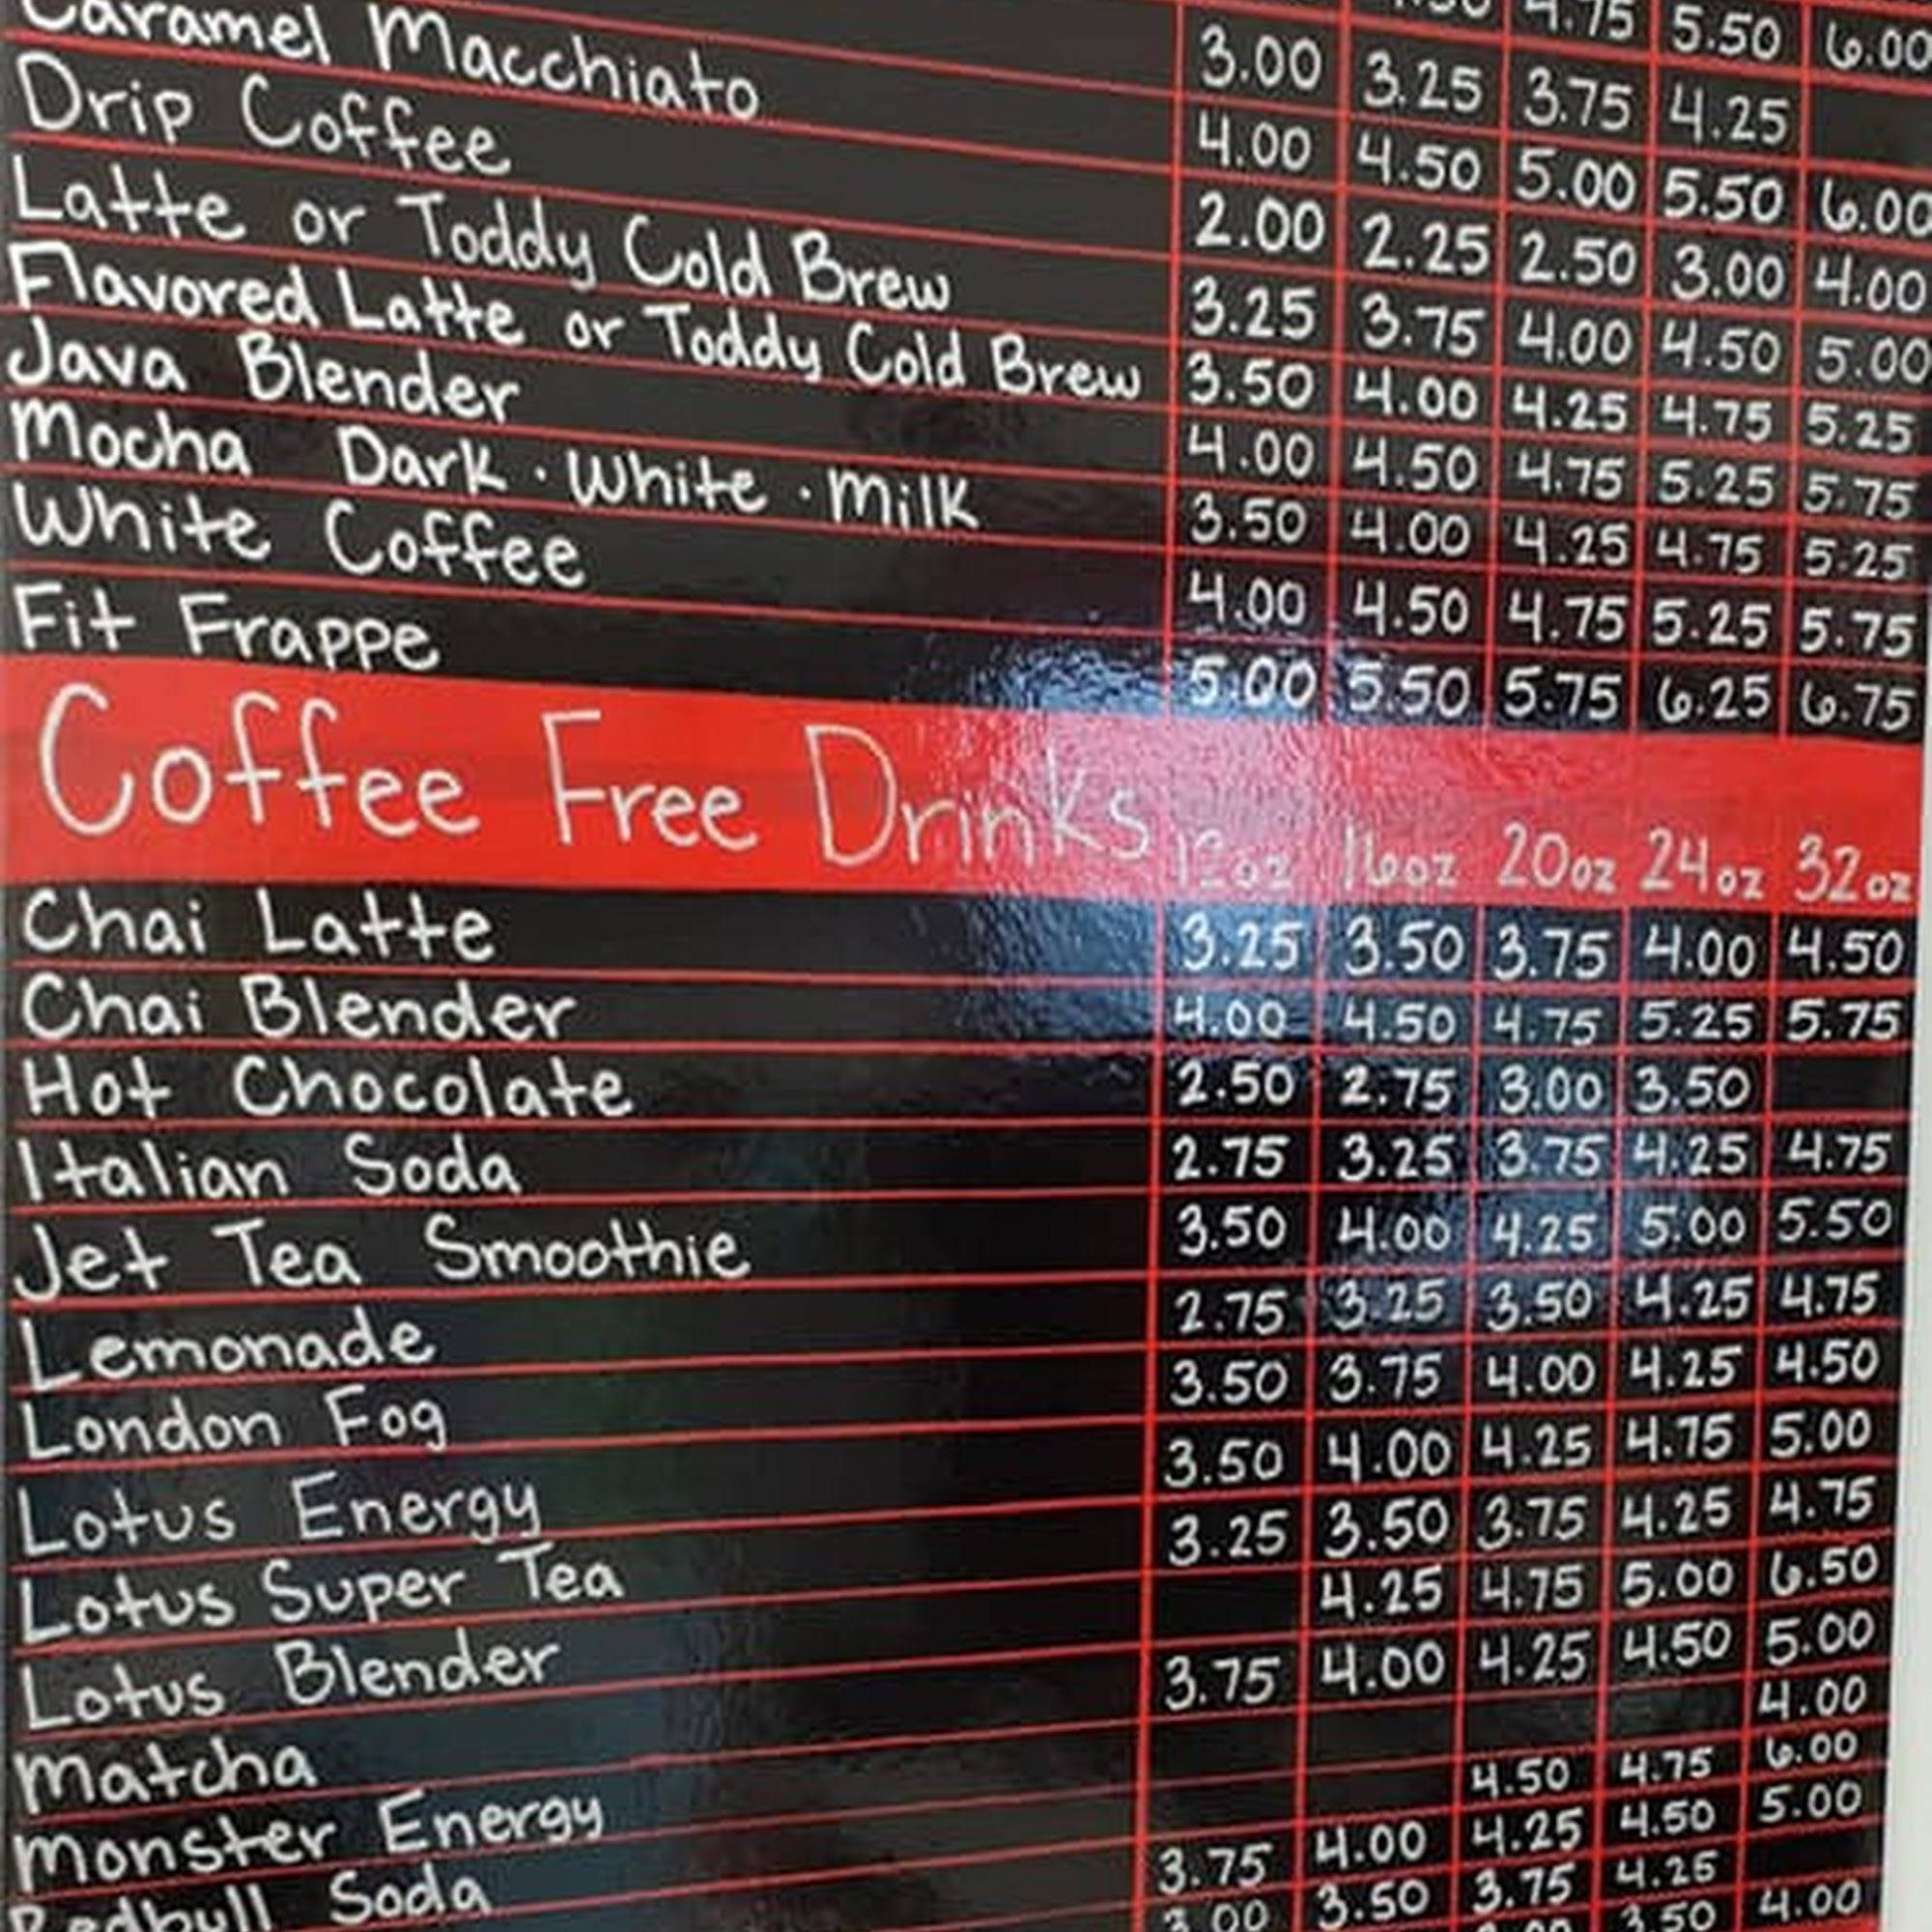 4.75 5.50 6.00
3.00 3.25 3.75 4.25
Caramel Macchiato 4.00 4.50 5.00 5.50 6.00
Drip Coffee 2.00 2.25 2.50 3.00 4.00
Latte or Toddy Cold Brew 3.25 3.75 4.00 4.50 5.00
Flavored Latte or Toddy Cold Brew 3.50 4.00 4.25 4.75 5.25
Java Blender 4.00 4.50 4.75 5.25 5.75
Mocha Dark · White · Milk 3.50 4.00 4.25 4.75 5.25
White Coffee 4.00 4.50 4.75 5.25 5.75
Fit Frappe 5.00 5.50 5.75 6.25 6.75
Coffee Free Drinks 12oz 16oz 20oz 24oz 32oz
Chai Latte 3.25 3.50 3.75 4.00 4.50
Chai Blender 4.00 4.50 4.75 5.25 5.75
Hot Chocolate 2.50 2.75 3.00 3.50
Italian Soda 2.75 3.25 3.75 4.25 4.75
Jet Tea Smoothie 3.50 4.00 4.25 5.00 5.50
Lemonade 2.75 3.25 3.50 4.25 4.75
London Fog 3.50 3.75 4.00 4.25 4.50
Lotus Energy 3.50 4.00 4.25 4.75 5.00
Lotus Super Tea 3.25 3.50 3.75 4.25 4.75
Lotus Blender 4.25 4.75 5.00 6.50
Matcha 3.75 4.00 4.25 4.50 5.00
Monster Energy 4.00
Redbull Soda 4.50 4.75 6.00
3.75 4.00 4.25 4.50 5.00
3.00 3.50 3.75 4.25
3.50 4.00